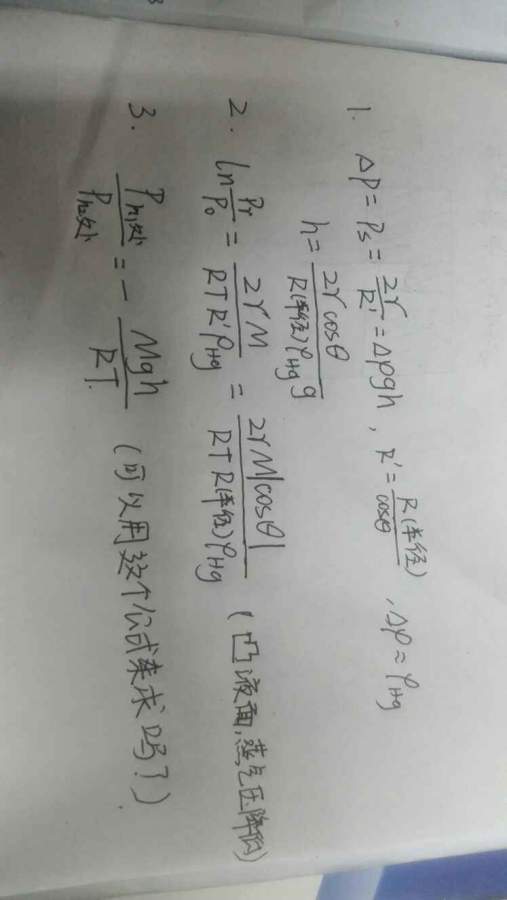 1. ΔP = Ps = 2γ/R' = Δρgh , R' = R(半径)/cosθ , Δρ ≈ ρHg
h = 2γcosθ/R(半径)ρHg g
2. ln Pr/P0 = 2γM/RTR'ρHg = 2γM|cosθ|/RTR(半径)ρHg (凹液面,蒸气压降低)
3. Ph1处/Ph2处 = - Mgh/RT. (可以用这个公式来求吗?)